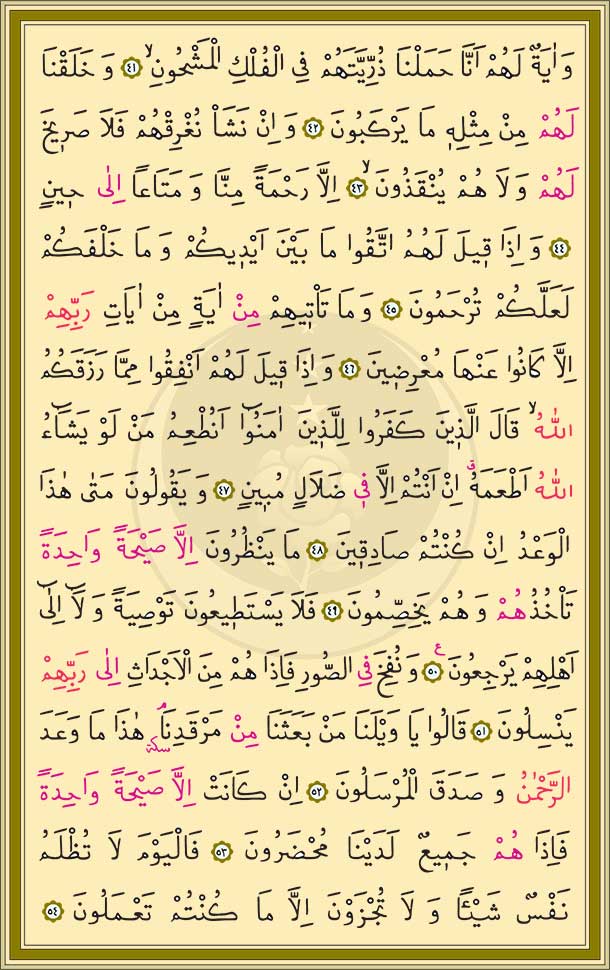 وَاٰيَةٌ لَهُمْ اَنَّا حَمَلْنَا ذُرِّيَّتَهُمْ فِي الْفُلْكِ الْمَشْحُونِۙ ﴿٤١﴾ وَخَلَقْنَا
لَهُمْ مِنْ مِثْلِهٖ مَا يَرْكَبُونَ ﴿٤٢﴾ وَاِنْ نَشَأْ نُغْرِقْهُمْ فَلَا صَرٖيخَ
لَهُمْ وَلَا هُمْ يُنْقَذُونَۙ ﴿٤٣﴾ اِلَّا رَحْمَةً مِنَّا وَمَتَاعاً اِلٰى حٖينٍ
﴿٤٤﴾ وَاِذَا قٖيلَ لَهُمُ اتَّقُوا مَا بَيْنَ اَيْدٖيكُمْ وَمَا خَلْفَكُمْ
لَعَلَّكُمْ تُرْحَمُونَ ﴿٤٥﴾ وَمَا تَأْتٖيهِمْ مِنْ اٰيَةٍ مِنْ اٰيَاتِ رَبِّهِمْ
اِلَّا كَانُوا عَنْهَا مُعْرِضٖينَ ﴿٤٦﴾ وَاِذَا قٖيلَ لَهُمْ اَنْفِقُوا مِمَّا رَزَقَكُمُ
اللّٰهُۙ قَالَ الَّذٖينَ كَفَرُوا لِلَّذٖينَ اٰمَنُٓوا اَنُطْعِمُ مَنْ لَوْ يَشَٓاءُ
اللّٰهُ اَطْعَمَهُۗ اِنْ اَنْتُمْ اِلَّا فٖي ضَلَالٍ مُبٖينٍ ﴿٤٧﴾ وَيَقُولُونَ مَتٰى هٰذَا
الْوَعْدُ اِنْ كُنْتُمْ صَادِقٖينَ ﴿٤٨﴾ مَا يَنْظُرُونَ اِلَّا صَيْحَةً وَاحِدَةً
تَأْخُذُهُمْ وَهُمْ يَخِصِّمُونَ ﴿٤٩﴾ فَلَا يَسْتَطٖيعُونَ تَوْصِيَةً وَلَٓا اِلٰٓى
اَهْلِهِمْ يَرْجِعُونَࣖ ﴿٥٠﴾ وَنُفِخَ فِي الصُّورِ فَاِذَا هُمْ مِنَ الْاَجْدَاثِ اِلٰى رَبِّهِمْ
يَنْسِلُونَ ﴿٥١﴾ قَالُوا يَا وَيْلَنَا مَنْ بَعَثَنَا مِنْ مَرْقَدِنَاۢ سكتة هٰذَا مَا وَعَدَ
الرَّحْمٰنُ وَصَدَقَ الْمُرْسَلُونَ ﴿٥٢﴾ اِنْ كَانَتْ اِلَّا صَيْحَةً وَاحِدَةً
فَاِذَا هُمْ جَمٖيعٌ لَدَيْنَا مُحْضَرُونَ ﴿٥٣﴾ فَالْيَوْمَ لَا تُظْلَمُ
نَفْسٌ شَيْـٔاً وَلَا تُجْزَوْنَ اِلَّا مَا كُنْتُمْ تَعْمَلُونَ ﴿٥٤﴾